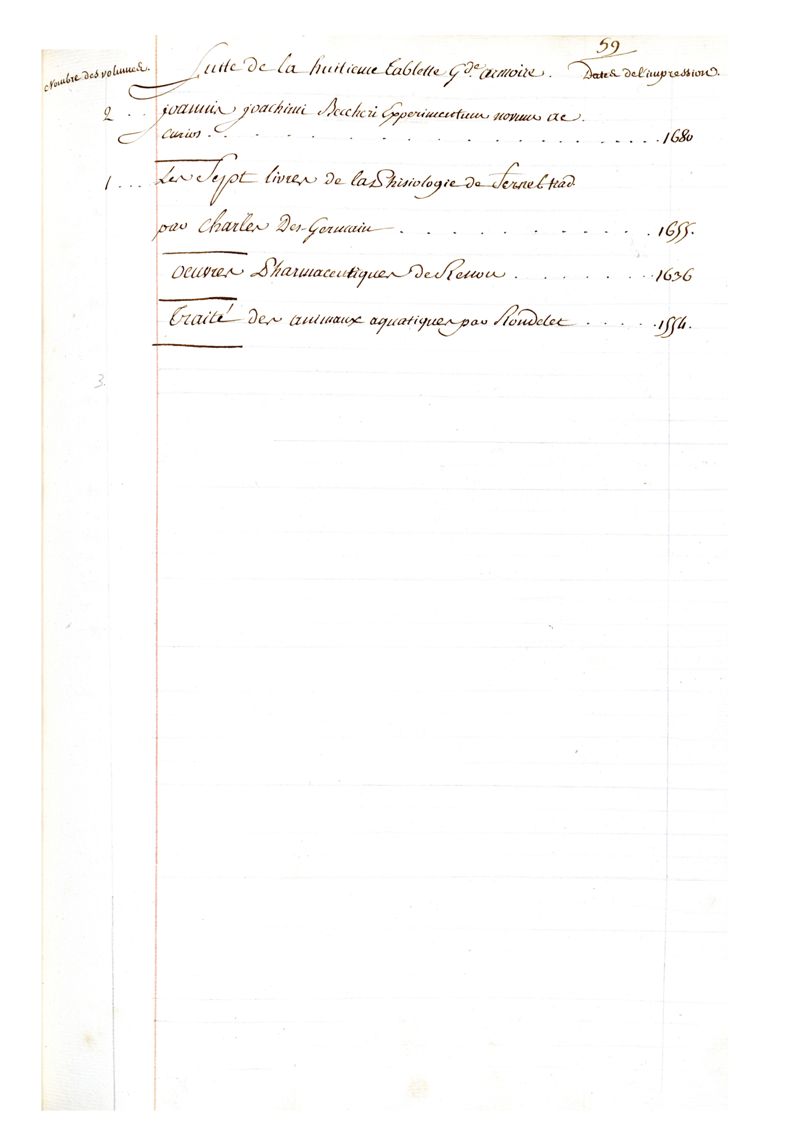 59
Nombre des volumes. Suite de la huitieme tablette Gde armoire. Dates de l'impression.
2 . . joannis joachimi Beccheri Experimentum novum ac
curios . . . . . . . . . . . . . . . 1680
1 . . . Les Sept livres de la Phisiologie de Fernel trad
par Charles Des-Germain . . . . . . . . . . . 1655.
Oeuvres Pharmaceutiques de Renou . . . . . . . 1636
Traité des animaux aquatiques par Rondelet . . . . . 1554.
3.